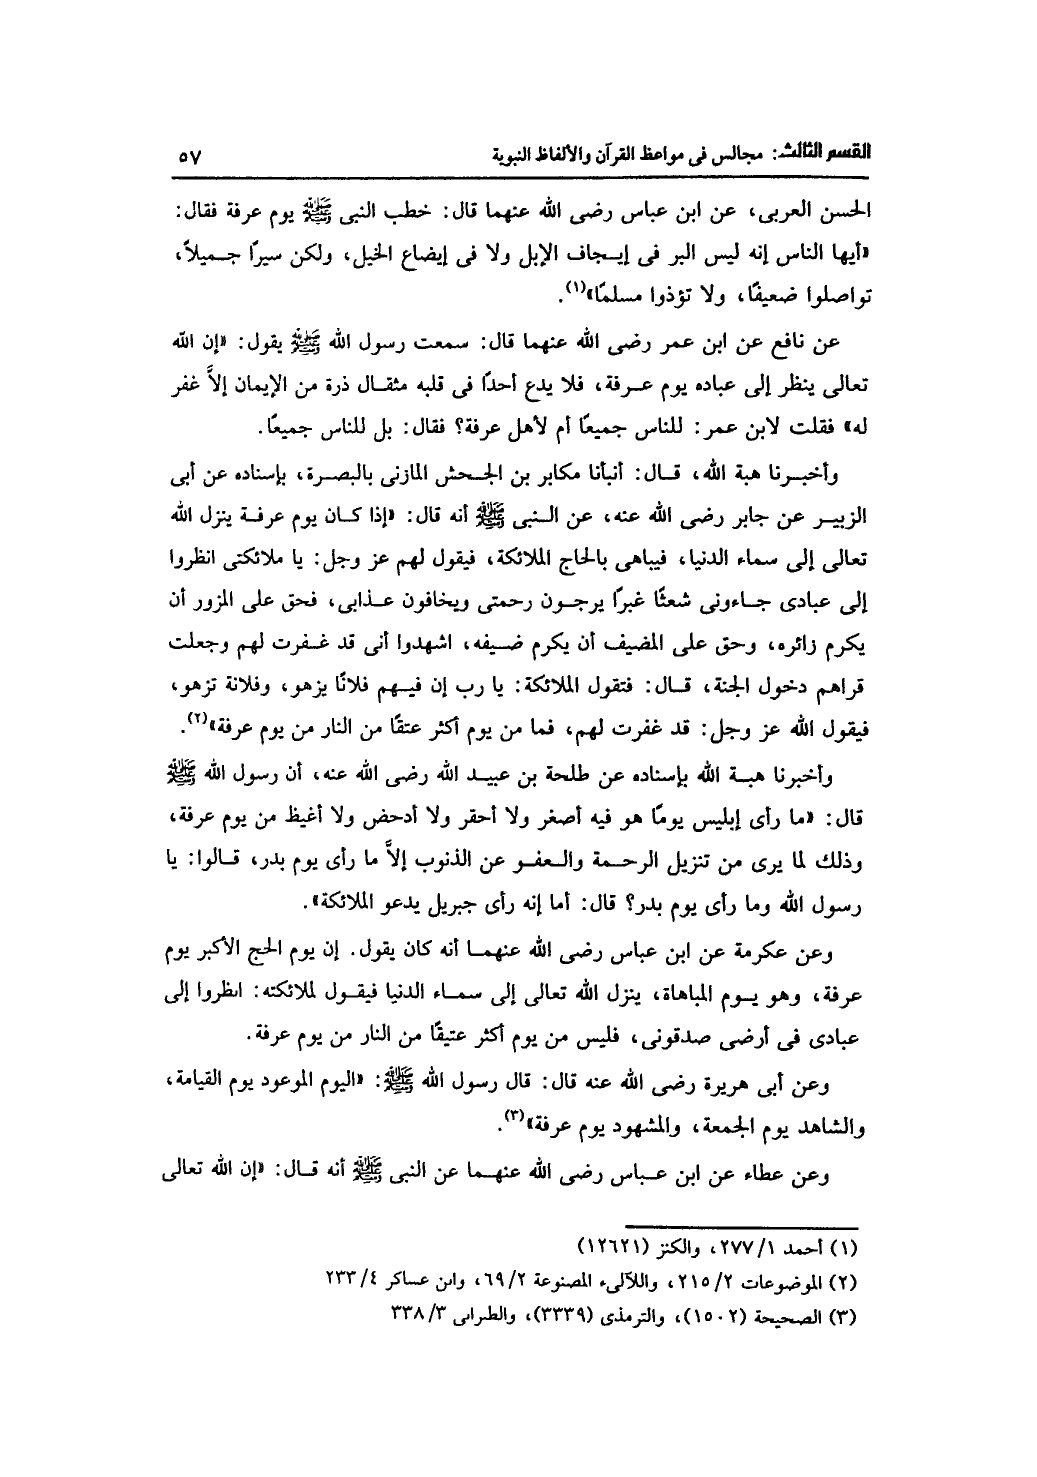 القسم الثالث: مجالس فى مواعظ القرآن والألفاظ النبوية ٥٧
الحسن العربى، عن ابن عباس رضى الله عنهما قال: خطب النبى ﷺ يوم عرفة فقال:
«أيها الناس إنه ليس البر فى إيـجاف الإبل ولا فى إيضاع الخيل، ولكن سيرًا جـميلاً،
تواصلوا ضعيفًا، ولا تؤذوا مسلمًا»(١).
عن نافع عن ابن عمر رضى الله عنهما قال: سمعت رسول الله ﷺ يقول: «إن الله
تعالى ينظر إلى عباده يوم عـرفة، فلا يدع أحدًا فى قلبه مثقـال ذرة من الإيمان إلاَّ غفر
له» فقلت لابن عمر: للناس جميعًا أم لأهل عرفة؟ فقال: بل للناس جميعًا.
وأخبـرنا هبة الله، قـال: أنبأنا مكابر بن الجـحش المازنى بالبصـرة، بإسناده عن أبى
الزبيـر عن جابر رضى الله عنه، عن الـنبى ﷺ أنه قال: «إذا كـان يوم عرفـة ينزل الله
تعالى إلى سماء الدنيا، فيباهى بالحاج الملائكة، فيقول لهم عز وجل: يا ملائكتى انظروا
إلى عبادى جـاءونى شعثًا غبرًا يرجـون رحمتى ويخافون عـذابى، فحق على المزور أن
يكرم زائره، وحق على المضيف أن يكرم ضـيفه، اشهدوا أنى قد غـفرت لهم وجعلت
قراهم دخول الجنة، قـال: فتقول الملائكة: يا رب إن فيـهم فلانًا يزهو، وفلانة تزهو،
فيقول الله عز وجل: قد غفرت لهم، فما من يوم أكثر عتقًا من النار من يوم عرفة»(٢).
وأخبرنا هبـة الله بإسناده عن طلحة بن عبيـد الله رضى الله عنه، أن رسول الله ﷺ
قال: «ما رأى إبليس يومًا هو فيه أصغر ولا أحقر ولا أدحض ولا أغيظ من يوم عرفة،
وذلك لما يرى من تنزيل الرحـمة والـعفـو عن الذنوب إلاَّ ما رأى يوم بدر، قـالوا: يا
رسول الله وما رأى يوم بدر؟ قال: أما إنه رأى جبريل يدعو الملائكة».
وعن عكرمة عن ابن عباس رضى الله عنهمـا أنه كان يقول. إن يوم الحج الأكبر يوم
عرفة، وهو يـوم المباهاة، ينزل الله تعالى إلى سمـاء الدنيا فيقـول لملائكته: انظروا إلى
عبادى فى أرضى صدقونى، فليس من يوم أكثر عتيقًا من النار من يوم عرفة.
وعن أبى هريرة رضى الله عنه قال: قال رسول الله ﷺ: «اليوم الموعود يوم القيامة،
والشاهد يوم الجمعة، والمشهود يوم عرفة»(٣).
وعن عطاء عن ابن عـباس رضى الله عنهـما عن النبى ﷺ أنه قـال: «إن الله تعالى
(١) أحمد ١/ ٢٧٧، والكنز (١٢٦٢١)
(٢) الموضوعات ٢/ ٢١٥، واللآلىء المصنوعة ٢/ ٦٩، وابن عساكر ٤/ ٢٣٣
(٣) الصحيحة (١٥٠٢)، والترمذى (٣٣٣٩)، والطبرانى ٣/ ٣٣٨